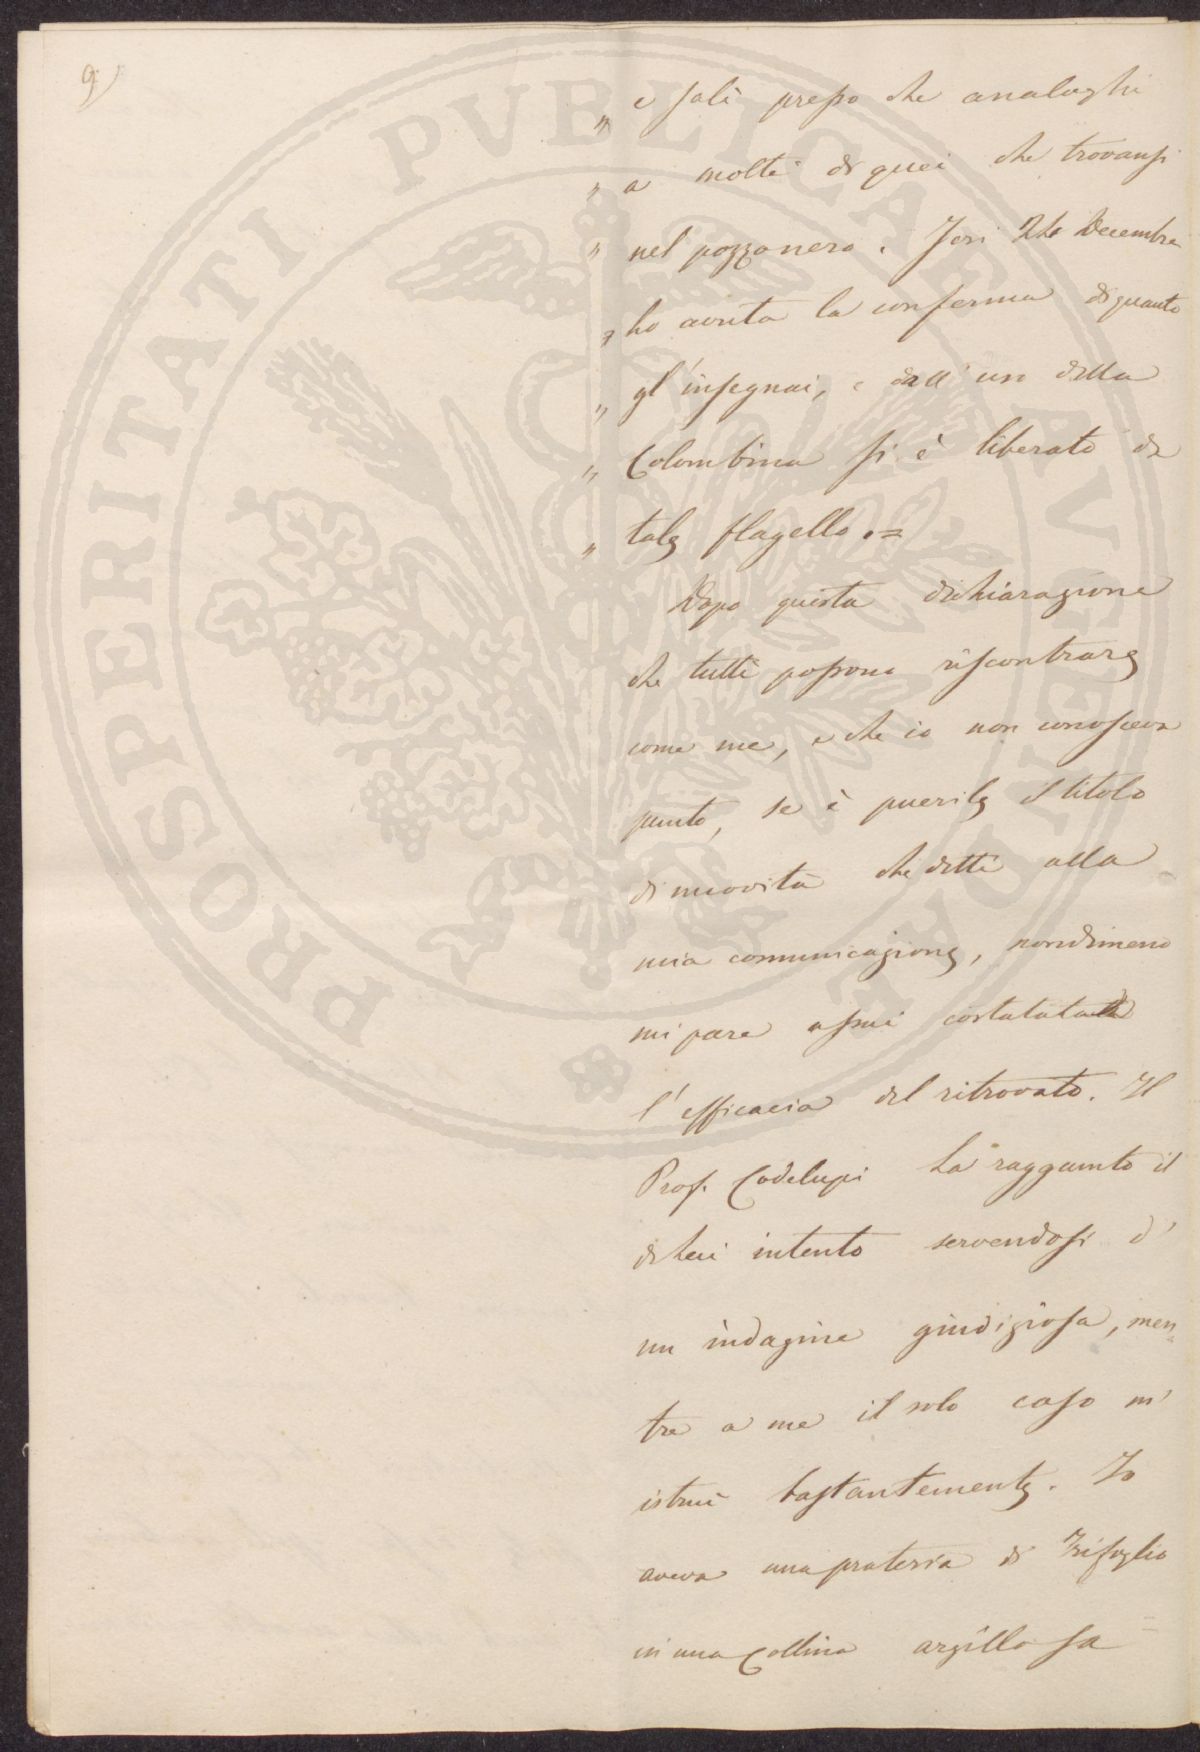 9)
„ e sali presso che analoghi
„ a molti di quei che trovansi
„ nel pozzo nero. Jeri 24 Decembre
„ ho avuta la conferma di quanto
„ gl'insegnai, e dall'uso della
„ Colombina si è liberato da
„ tale flagello. =
Dopo questa dichiarazione
che tutti possono riscontrare
come me, e che io non conosceva
punto, se è puerile il titolo
di nuovità che detti alla
mia comunicazione, nondimeno
mi pare assai costatata
l'efficacia del ritrovato. Il
Prof. Codelupi ha raggiunto il
di lui intento servendosi d'
un indagine giudiziosa, men=
tre a me il solo caso m'
istruì bastantemente. Io
aveva una prateria di Trifoglio
in una Collina argillosa
PROSPERITATI PVBLICAE AVGENDAE